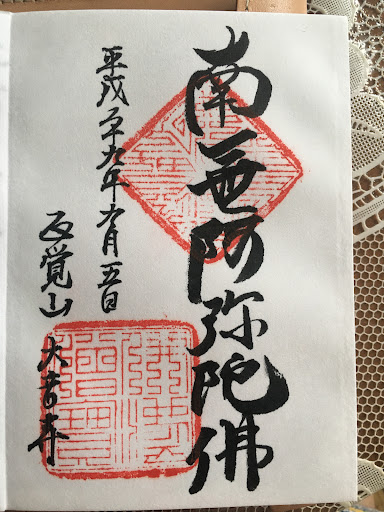 南無阿弥陀佛
平成二十九年九月五日
正覺山
大音寺